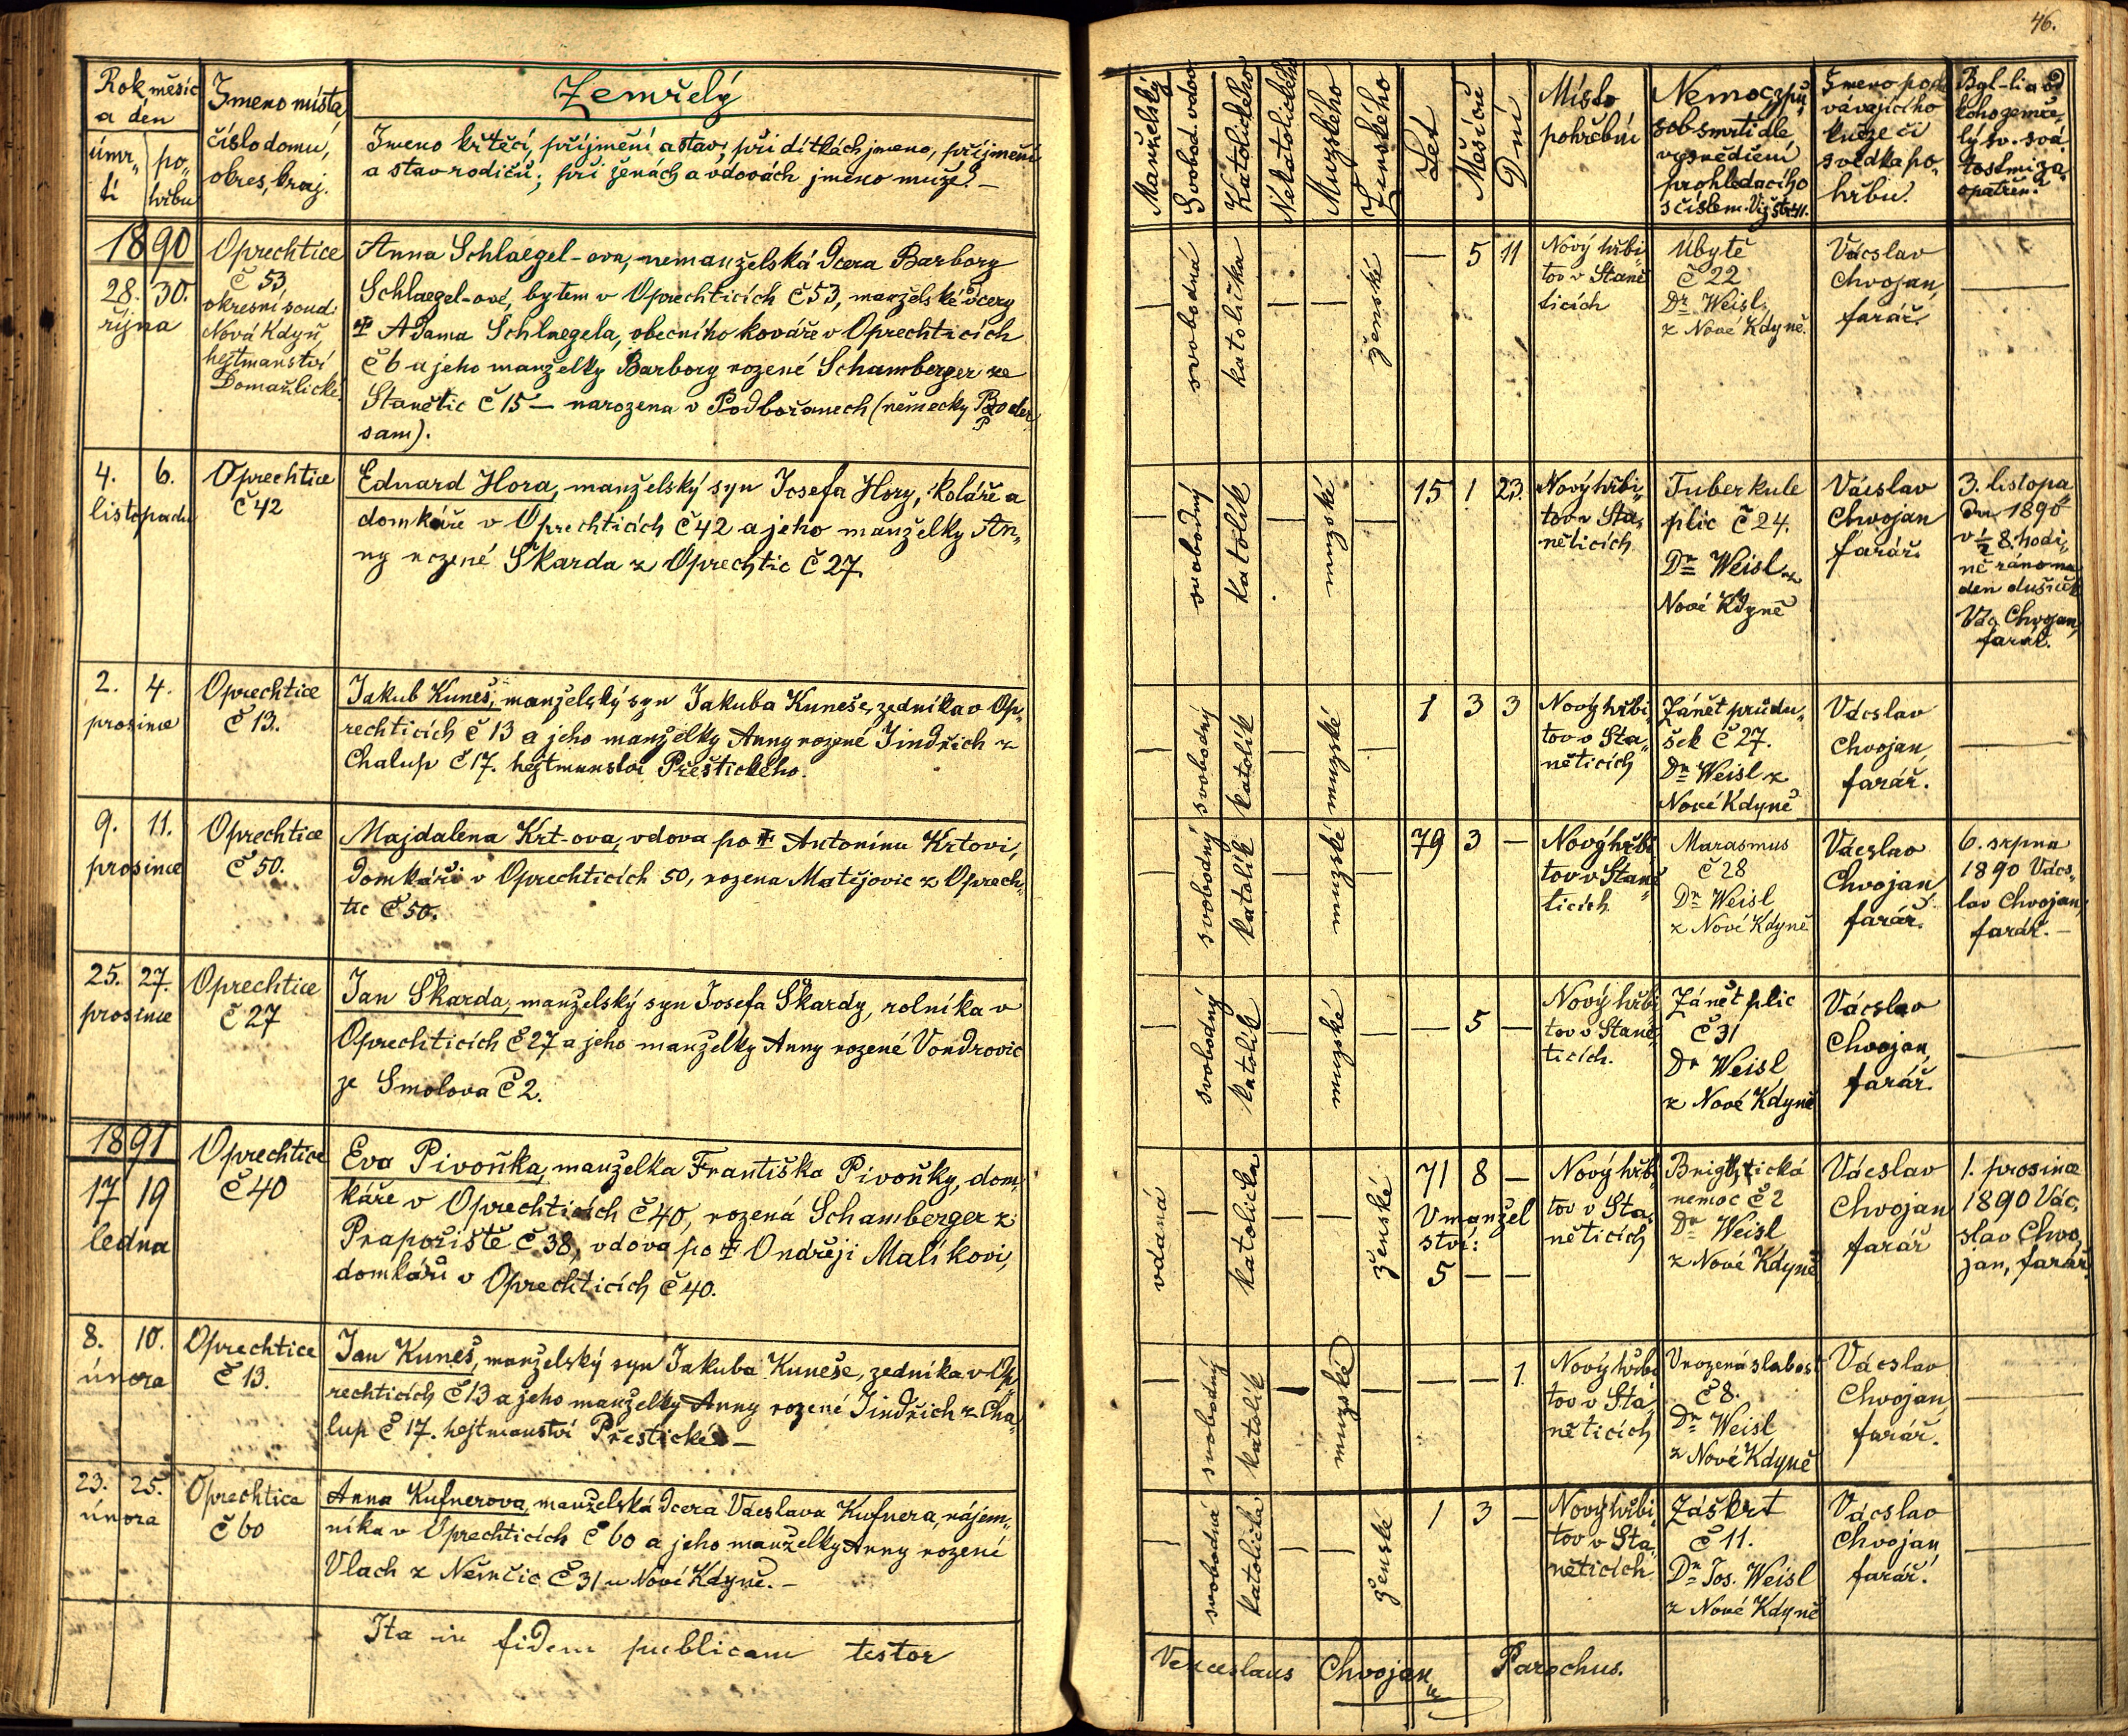 46.
Rok měsíc
a den
úmr-
tí
po-
hřbu
Jmeno místa,
číslo domu,
okres, kraj.
Zemřelý
Jmeno křtěcí, příjmení a stav; při dítkách jmeno, příjmení
a stav rodičů; při ženách a vdovách jmeno muže. —
Manželský
Svobod. vdov.
Katolického
Nekatolického
Mužského
Ženského
Let
Měsíců
Dní
Místo
pohřební
Nemoc, způ-
sob smrti dle
vysvědčení
prohledacího
s číslem. Viz str. 41.
Jmeno pocho-
vávajícího
kněze či
svědka po-
hřbu.
Byl-li a od
koho zemře-
lý sv. svá-
tostmi za-
opatřen?
1890
28. 30.
října
Oprechtice
č 53,
okresní soud:
Nová Kdyň,
hejtmanství
Domažlické.
Anna Schlaegel-ova, nemanželská dcera Barbory
Schlaegel-ové, bytem v Oprechticích č 53, manželské dcery
✝ Adama Schlaegela, obecního kováře v Oprechticích
č 6 a jeho manželky Barbory rozené Schamberger ze
Stanětic č 15 — narozena v Podbořanech (německy Poder-
sam).
— svobodná katolička — — ženské — 5 11
Nový hřbi-
tov v Staně-
ticích
Úbytě
č 22
Dr Weisl
z Nové Kdyně.
Vácslav
Chvojan,
farář.
—
4. 6.
listopadu
Oprechtice
č 42
Eduard Hora, manželský syn Josefa Hory, koláře a
domkáře v Oprechticích č 42 a jeho manželky An-
ny rozené Škarda z Oprechtic č 27.
— svobodný katolík — mužské — 15 1 23.
Nový hřbi-
tov v Sta-
něticích
Tuberkule
plic č 24.
Dr Weisl z
Nové Kdyně
Vácslav
Chvojan
farář.
3. listopa-
du 1890
v ½ 8. hodi-
ně ráno na
den dušiček
Vác. Chvojan,
farář.
2. 4.
prosince
Oprechtice
č 13.
Jakub Kuneš, manželský syn Jakuba Kuneše, zedníka v Op-
rechticích č 13 a jeho manželky Anny rozené Jindřich z
Chalup č 17. hejtmanství Přeštického.
— svobodný katolík — mužské — 1 3 3
Nový hřbi-
tov v Sta-
něticích
Zánět průdu-
šek č 27.
Dr Weisl z
Nové Kdyně
Vácslav
Chvojan,
farář.
—
9. 11.
prosince
Oprechtice
č 50.
Majdalena Krt-ova, vdova po ✝ Antonínu Krtovi,
domkáři v Oprechticích 50, rozena Matějovic z Oprech-
tic č 50.
— svobodný katolík — mužské — 79 3 —
Nový hřbi-
tov v Staně-
ticích.
Marasmus
č 28
Dr Weisl
z Nové Kdyně
Vácslav
Chvojan,
farář.
6. srpna
1890 Vács-
lav Chvojan,
farář. —
25. 27.
prosince
Oprechtice
č 27
Jan Škarda, manželský syn Josefa Škardy, rolníka v
Oprechticích č 27 a jeho manželky Anny rozené Vondrovic
ze Smolova č 2.
— svobodný katolík — mužské — — 5 —
Nový hřbi-
tov v Staně-
ticích.
Zánět plic
č 31
Dr Weisl
z Nové Kdyně
Vácslav
Chvojan,
farář.
—
1891
17 19
ledna
Oprechtice
č 40
Eva Pivoňka, manželka Františka Pivoňky, dom-
káře v Oprechticích č 40, rozená Schamberger z
Prapořiště č 38, vdova po ✝ Ondřeji Malíkovi,
domkáři v Oprechticích č 40.
vdaná — katolička — — ženské 71 8 —
V manžel
ství:
5 — —
Nový hřbi-
tov v Sta-
něticích
Brightická
nemoc č 2
Dr Weisl
z Nové Kdyně
Vácslav
Chvojan
farář
1. prosince
1890 Vác-
slav Chvo-
jan, farář.
8. 10.
února
Oprechtice
č 13.
Jan Kuneš, manželský syn Jakuba Kuneše, zedníka v Op-
rechticích č 13 a jeho manželky Anny rozené Jindřich z Cha-
lup č 17. hejtmanství Přeštické. —
— svobodný katolík — mužské — — — 1
Nový hřbi-
tov v Sta-
něticích
Vrozená slabost
č 8.
Dr Weisl
z Nové Kdyně
Vácslav
Chvojan,
farář.
—
23. 25.
února
Oprechtice
č 60
Anna Kufnerova, manželská dcera Vácslava Kufnera, nájem-
níka v Oprechticích č 60 a jeho manželky Anny rozené
Vlach z Němčic č 31 u Nové Kdyně. —
— svobodná katolička — — ženské 1 3 —
Nový hřbi-
tov v Sta-
něticích
Záškrt
č 11.
Dr Jos. Weisl
z Nové Kdyně
Vácslav
Chvojan,
farář.
—
Ita in fidem publicam testor
Venceslaus Chvojan, Parochus.